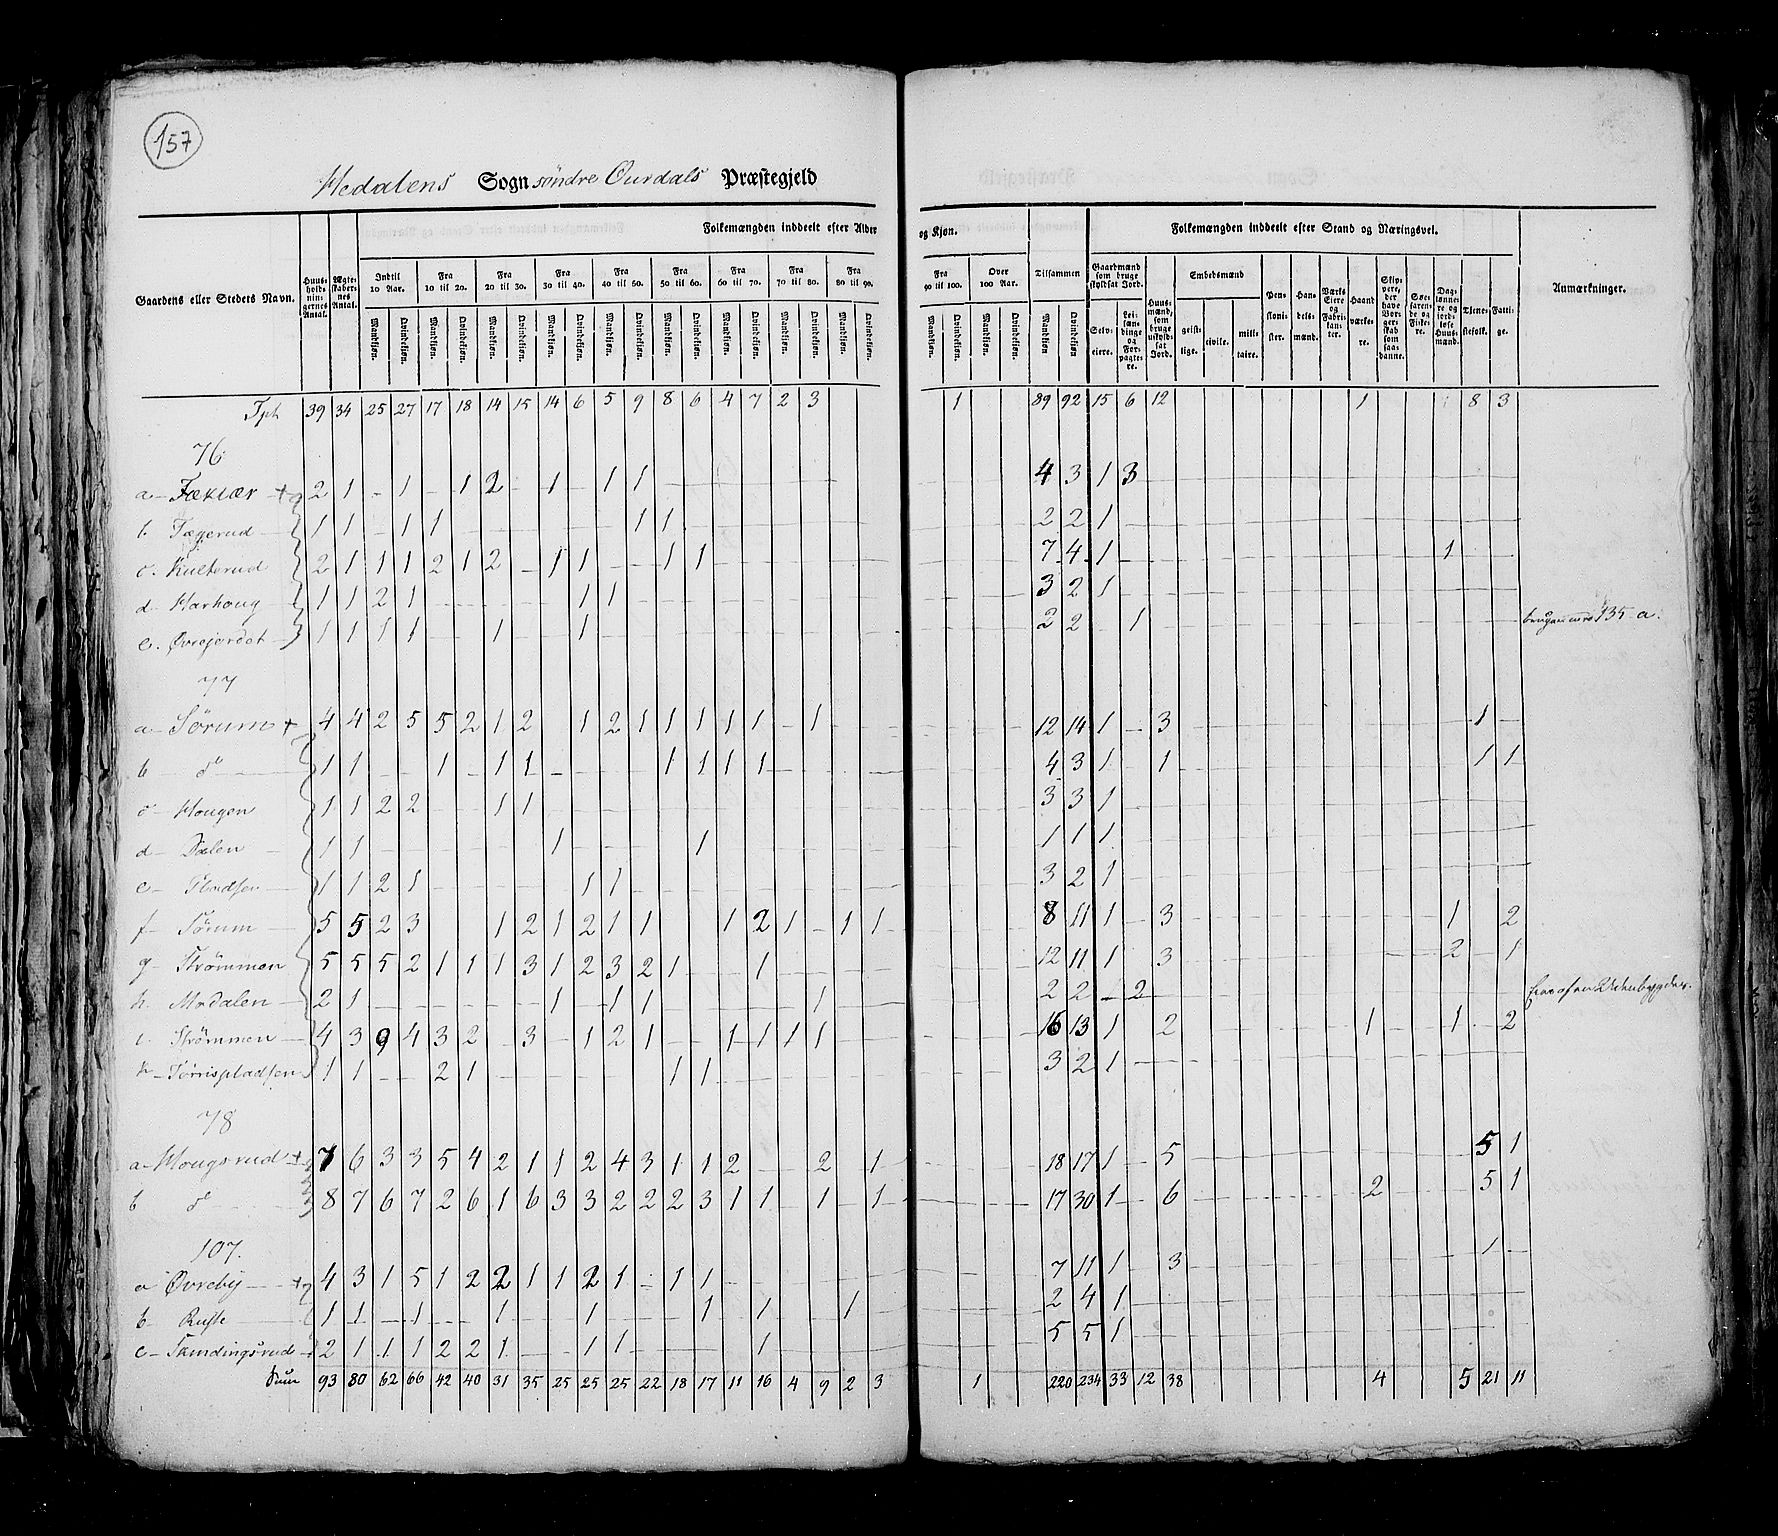 157
Hedalens Sogn søndre Ourdals Præstegjeld
Gaardens eller Stedets Navn.
Huus-holdningernes Antal.
Ægteskabernes Antal.
Folkemængden inddeelt efter Alder og Kjøn.
Indtil 10 Aar. Fra 10 til 20. Fra 20 til 30. Fra 30 til 40. Fra 40 til 50. Fra 50 til 60. Fra 60 til 70. Fra 70 til 80. Fra 80 til 90. Fra 90 til 100. Over 100 Aar. Tilsammen
Mandkjøn. Qvindekjøn. Mandkjøn. Qvindekjøn. Mandkjøn. Qvindekjøn. Mandkjøn. Qvindekjøn. Mandkjøn. Qvindekjøn. Mandkjøn. Qvindekjøn. Mandkjøn. Qvindekjøn. Mandkjøn. Qvindekjøn. Mandkjøn. Qvindekjøn. Mandkjøn. Qvindekjøn. Mandkjøn. Qvindekjøn. Mandkjøn Qvindekjøn.
Folkemængden inddeelt efter Stand og Næringsvei.
Gaardmænd som bruge skyldsat Jord.
Selveiere.
Leilændinge og Forpagtere.
Huusmænd, som bruge uskyldsat Jord.
Embedsmænd
geistlige. civile. militaire.
Pensionister.
Handelsmænd.
Værks Eiere og Fabrikanter.
Haandværkere.
Skippere, der have Borgerskab som saadanne.
Søefarende og Fiskere.
Daglønnere og jordløse Huusmænd.
Tjenestefolk.
Fattige.
Anmærkninger.
Tph 39 34 25 27 17 18 14 15 14 6 5 9 8 6 4 7 2 3 1 89 92 15 6 12 1 8 3
76
a - Fækiær + 2 1 - 1 - 1 2 - 1 - 1 1 4 3 1 3
b. Fægerud 1 1 - 1 1 1 1 2 2 1
c. Kulterud 2 1 1 1 2 1 2 - 1 1 1 1 7 4 1 1
d. Harhoug 1 1 2 1 1 1 3 2 1
e. Øvrejordet 1 1 1 1 1 1 2 2 1 135 a.
77
a - Sørum + 4 4 2 5 5 2 1 2 1 2 1 1 1 1 1 - 1 12 14 1 - 3 1
b do 1 1 1 - 1 1 - 1 1 1 1 4 3 1 1 1 1
c - Hougen 1 1 2 2 1 1 3 3 1
d - Dalen 1 1 1 1 1 1 1
e - Pladsen 1 1 2 1 1 1 3 2 1
f - Sørum 5 5 2 3 1 2 1 2 1 1 1 2 1 - 1 1 8 11 1 - 3 1 2
g - Strømmen 5 5 5 2 1 1 1 3 1 2 3 2 1 1 12 11 1 3 2 1
h. Modalen 2 1 1 - 1 1 1 2 2 - 2 Udenbygdes.
i. Strømmen 4 3 9 4 3 2 - 3 - 1 2 1 1 1 1 1 16 13 1 2 1 1 2
k - Tørrispladsen 1 1 - - 2 1 1 1 3 2 1
78
a - Hougsrud + 7 6 3 3 5 4 2 1 1 2 4 3 1 1 2 2 - 1 18 17 1 - 5 5 1
b do 8 7 6 7 2 6 1 6 3 3 2 2 2 3 1 1 - 1 - 1 17 30 1 - 6 2 5 1
107.
a Øvreby + 4 3 1 5 1 2 2 1 1 2 1 - 1 1 7 11 1 3 1
b - Ruste 1 1 - 1 1 1 1 1 1 2 4 1
c - Tamdingsrud 2 1 1 1 2 2 1 1 1 1 5 5 1
Sum 93 80 62 66 42 40 31 35 25 25 25 22 18 17 11 16 4 9 2 3 1 220 234 33 12 38 4 5 21 11